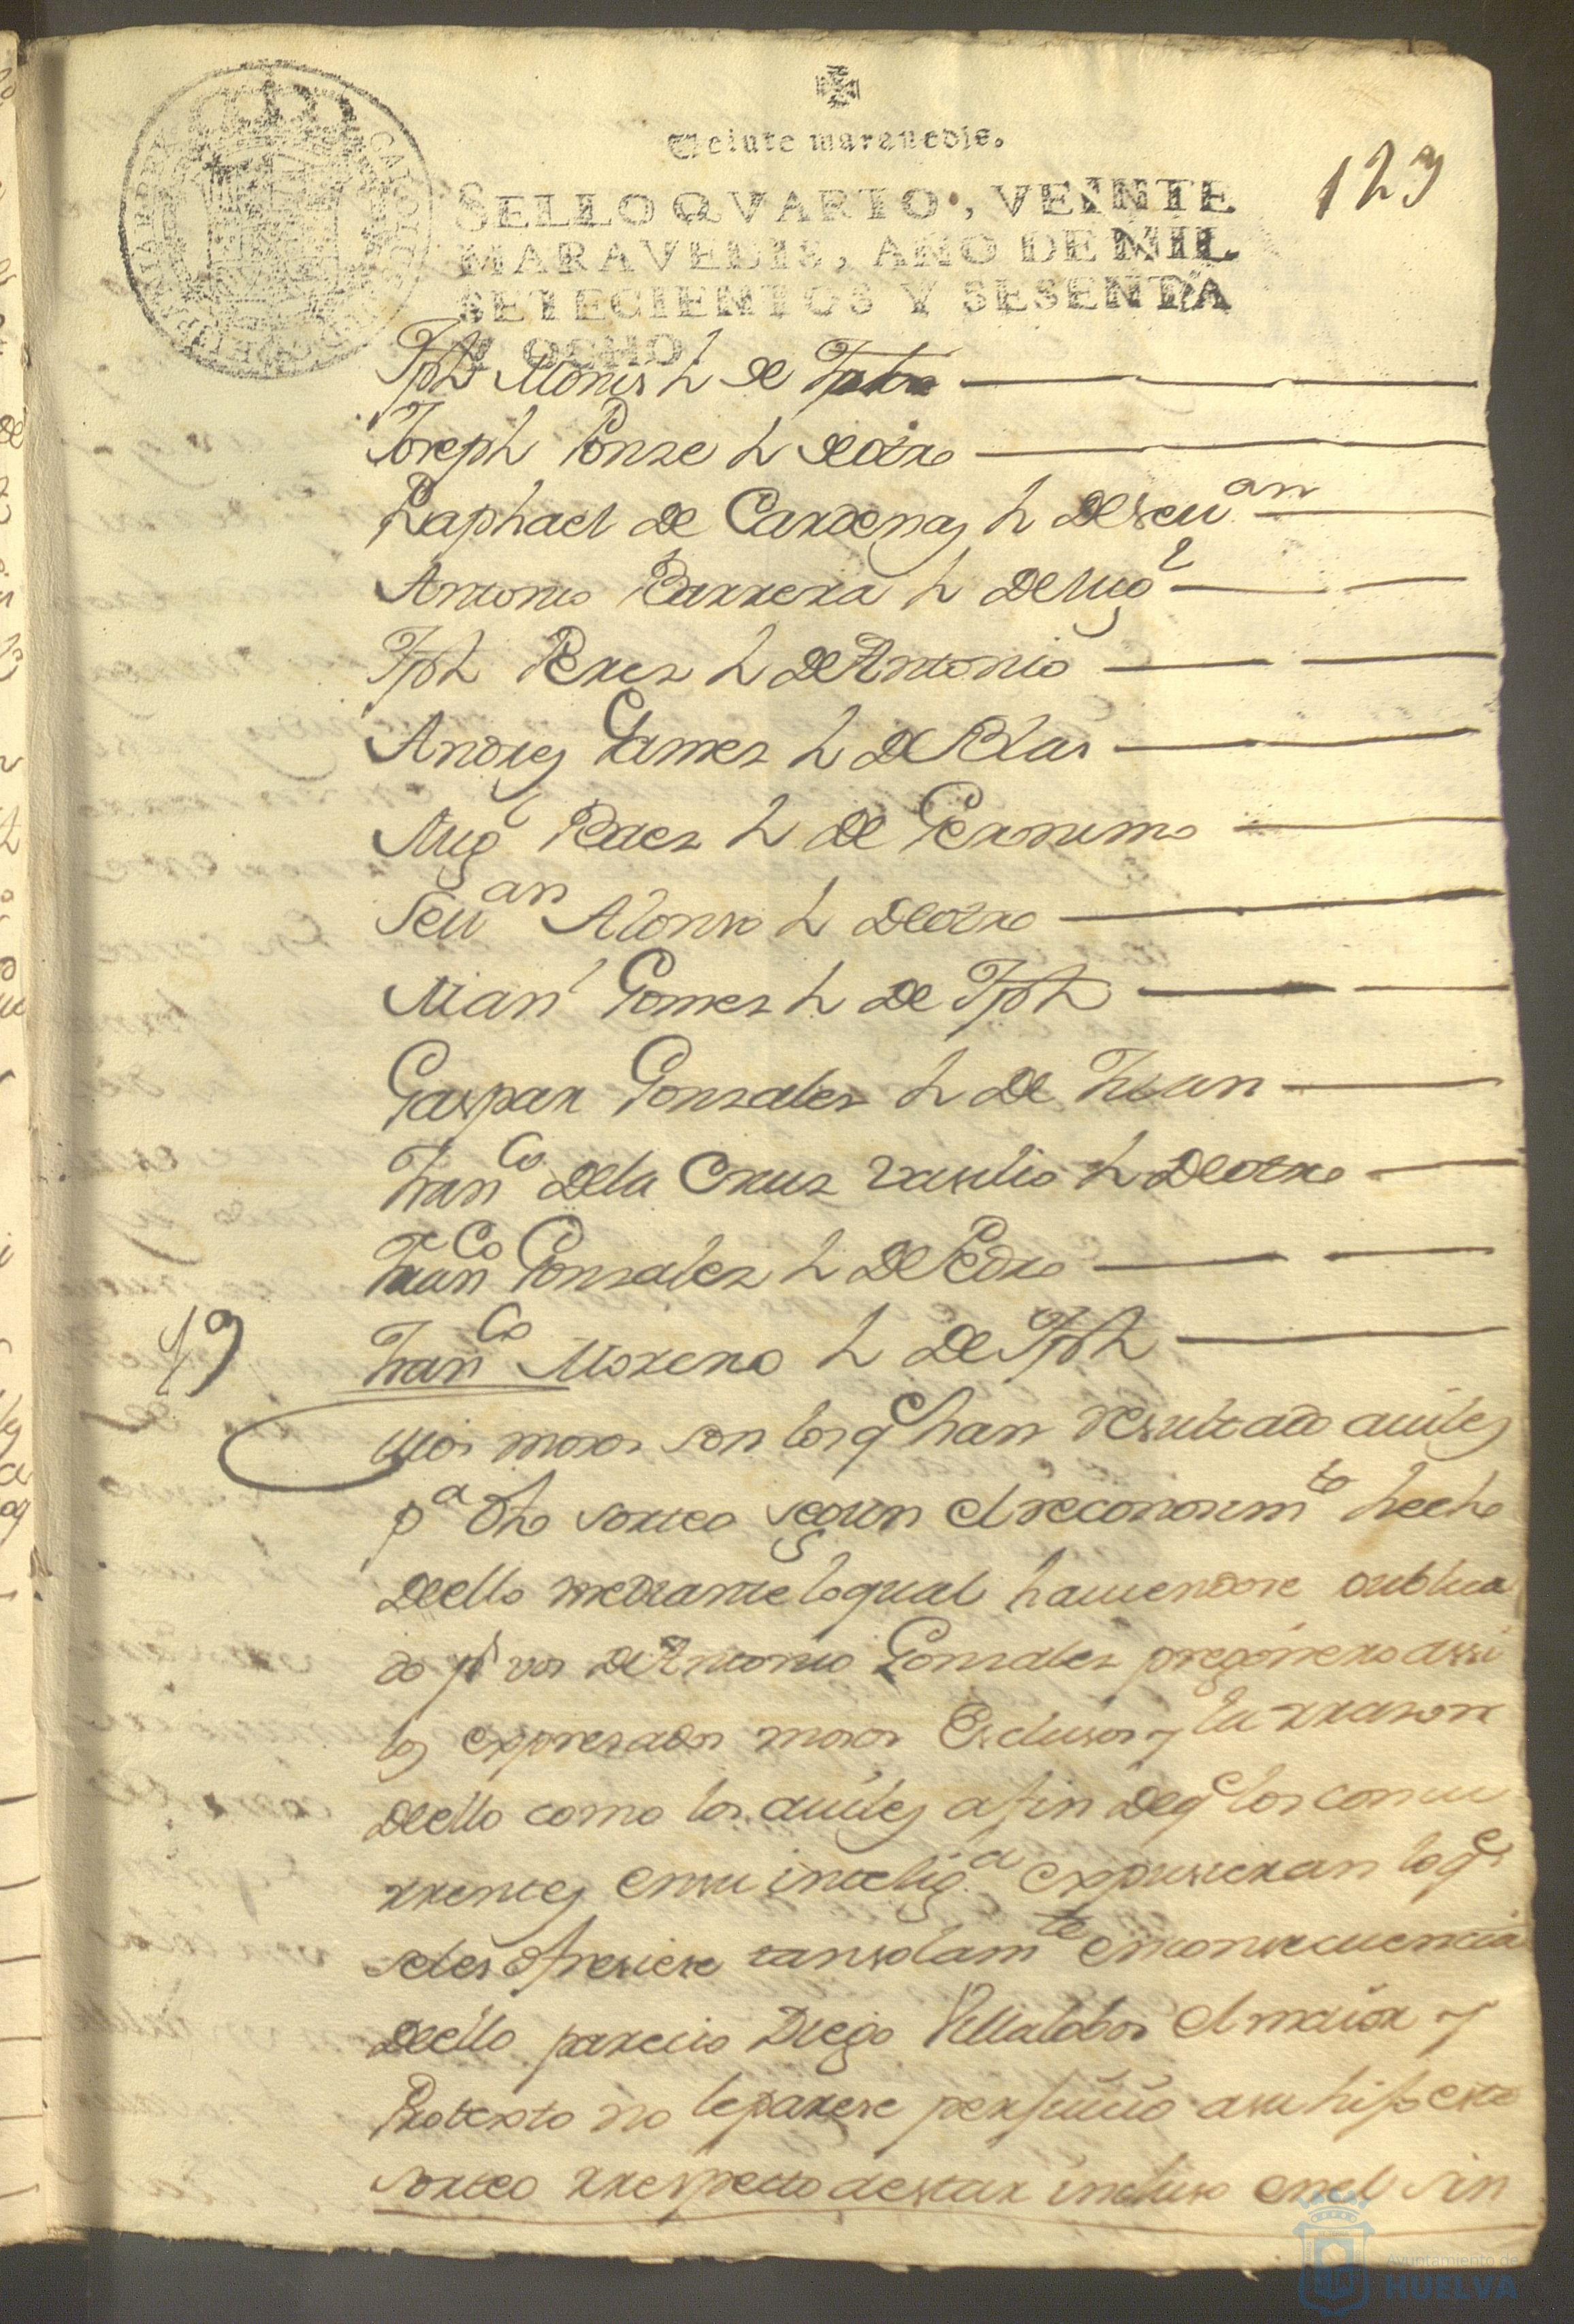 Veinte maravedis.
123
SELLO QVARTO, VEINTE
MARAVEDIS, AÑO DE MIL
SETECIENTOS Y SESENTA
Y OCHO.
Jph h de
Joseph Ponze h de otro
Raphael de Cardenas h de Seuan
Antonio Barrera h de Migl
Jph Perez h de Antonio
Andres Gamez h de Blas
Migl Perez h de Geronimo
Seuan Alonso h de otro
Manl Gomez h de Jph
Gaspar Gonzales h de Juan
Franco de la Cruz vasilio h de otro
Franco Gonzalez h de Pedro
19
Franco Moreno h de Jph
mosos son los qe han resultado auiles
pa dho sorteo segun el reconosimto hecho
de ello mediante lo qual hauiendose publica
do pr vos de Antonio Gonzalez pregonero assi
los expresados mosos Esclusos y la rrason
de ello como los auiles a fin de qe los concu
rrentes en su inteliga expusieran lo qe
se les ofresiese tan solamte en consecuencia
de ello parecio Diego Villalobos el maior y
Protexto no le parase perjuicio a su hijo este
sorteo rrespecto a estar incluso en el sin
Ayuntamiento de
HUELVA